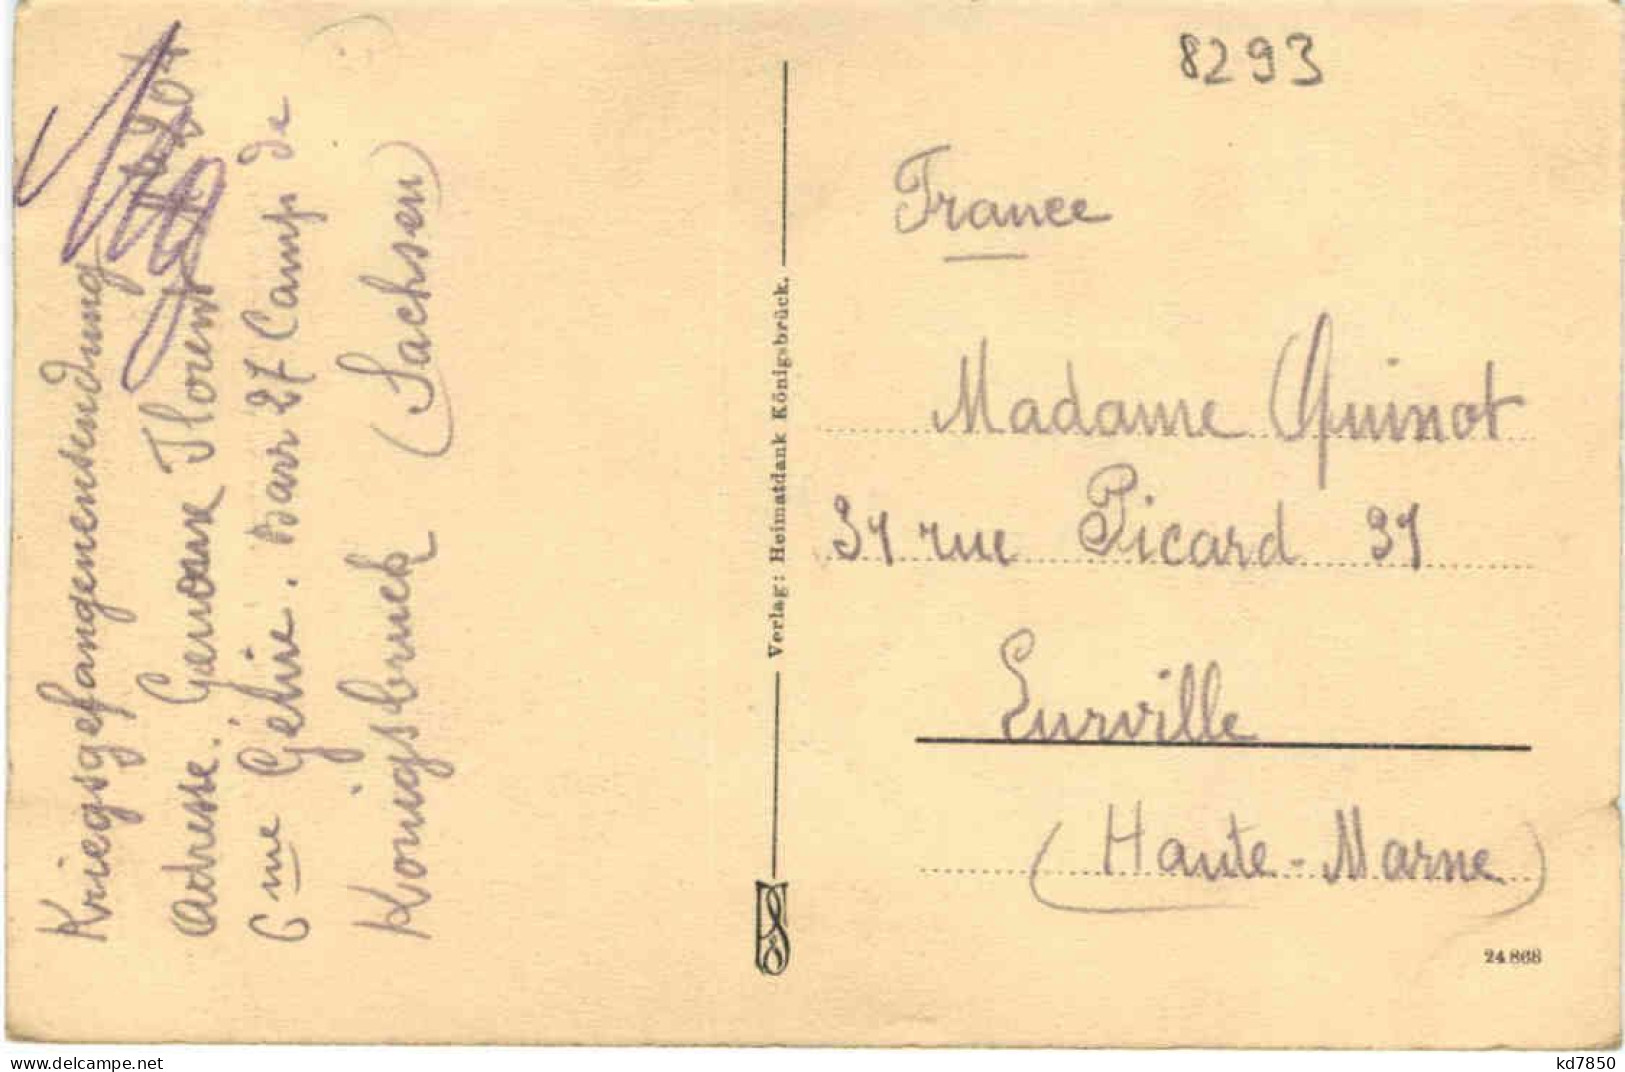 Kriegsgefangenensendung
Adresse. Florent
6me Génie. Barr 27 Camp de
Königsbruck (Sachsen)
Verlag: Heimatdank Königsbrück.
8293
France
Madame Quinot
31 rue Picard 31
Eurville
(Haute-Marne)
24 868
www.delcampe.net
kd7850